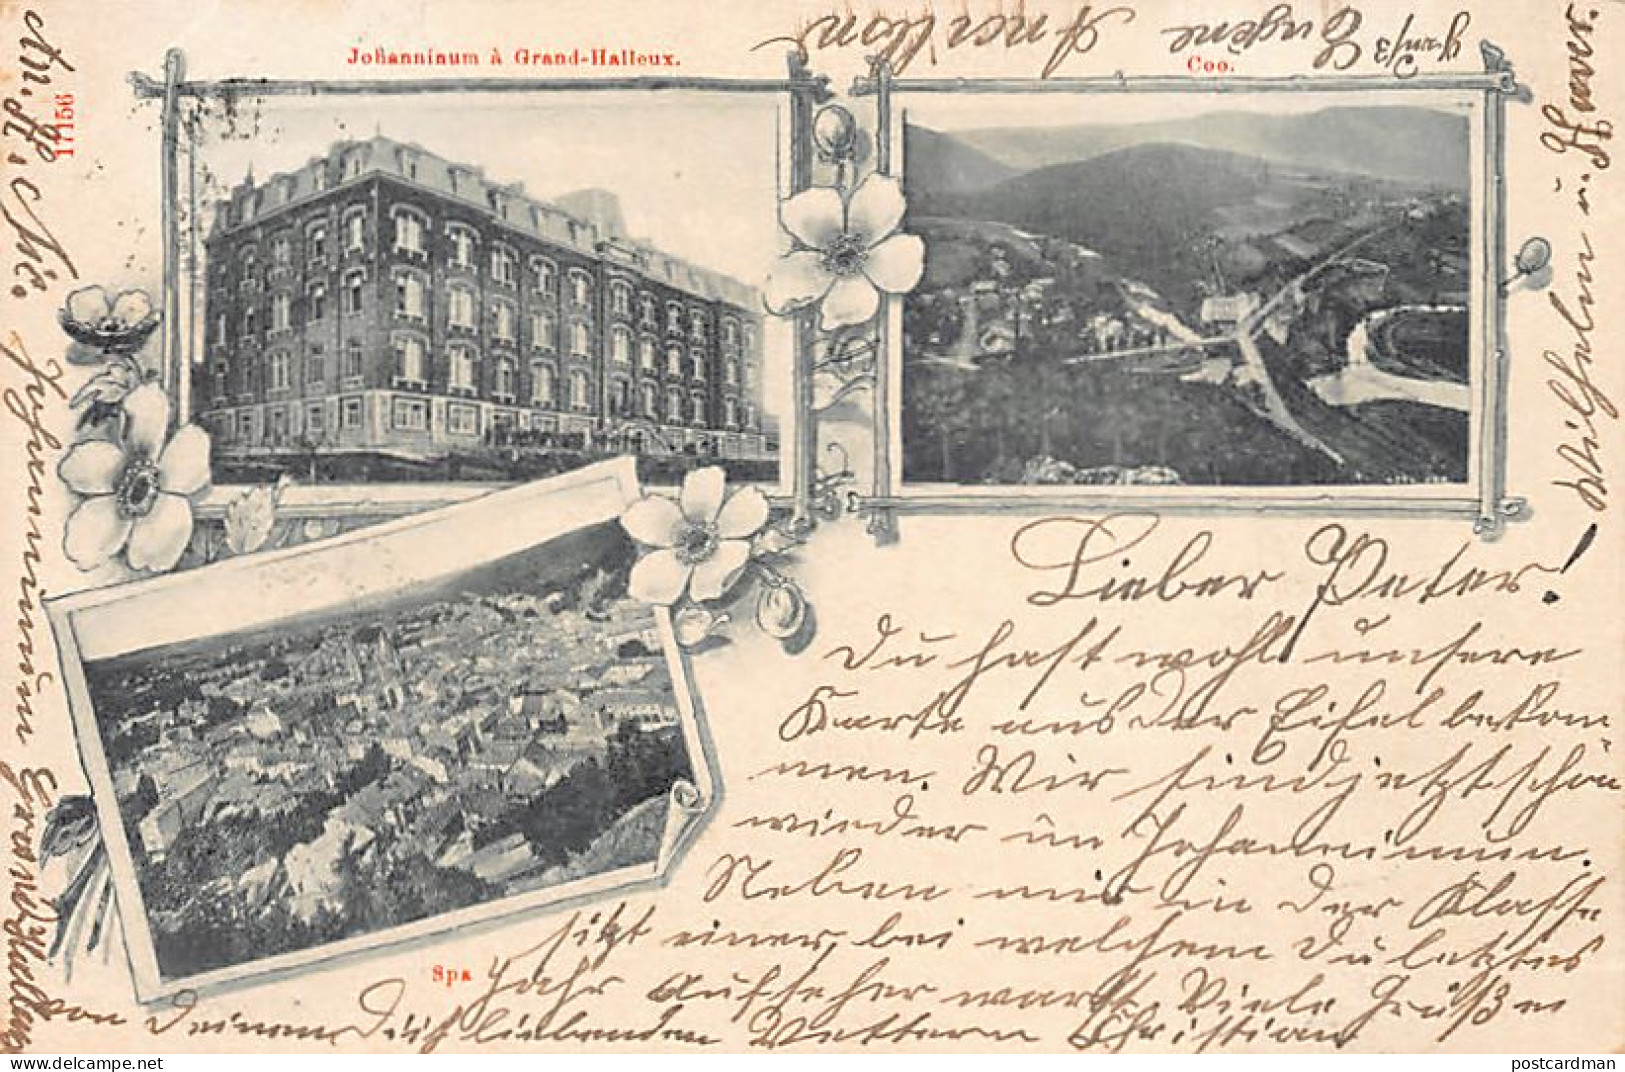 Johanninum à Grand-Halleux.
Coo.
17156
Spa
Lieber Peter!
Du hast wohl unsere
Karte aus der Eifel bekom-
men. Wir sind jetzt schon
wieder im Johanninum.
Neben mir in der Klasse
sitzt einer, bei welchem Du letztes
Jahr Aufseher warst. Viele Grüße
von Deinem Dich liebenden Vettern Christian
Wilhelm u.
Johanninum Grandhalleux
Eugène
postcardman